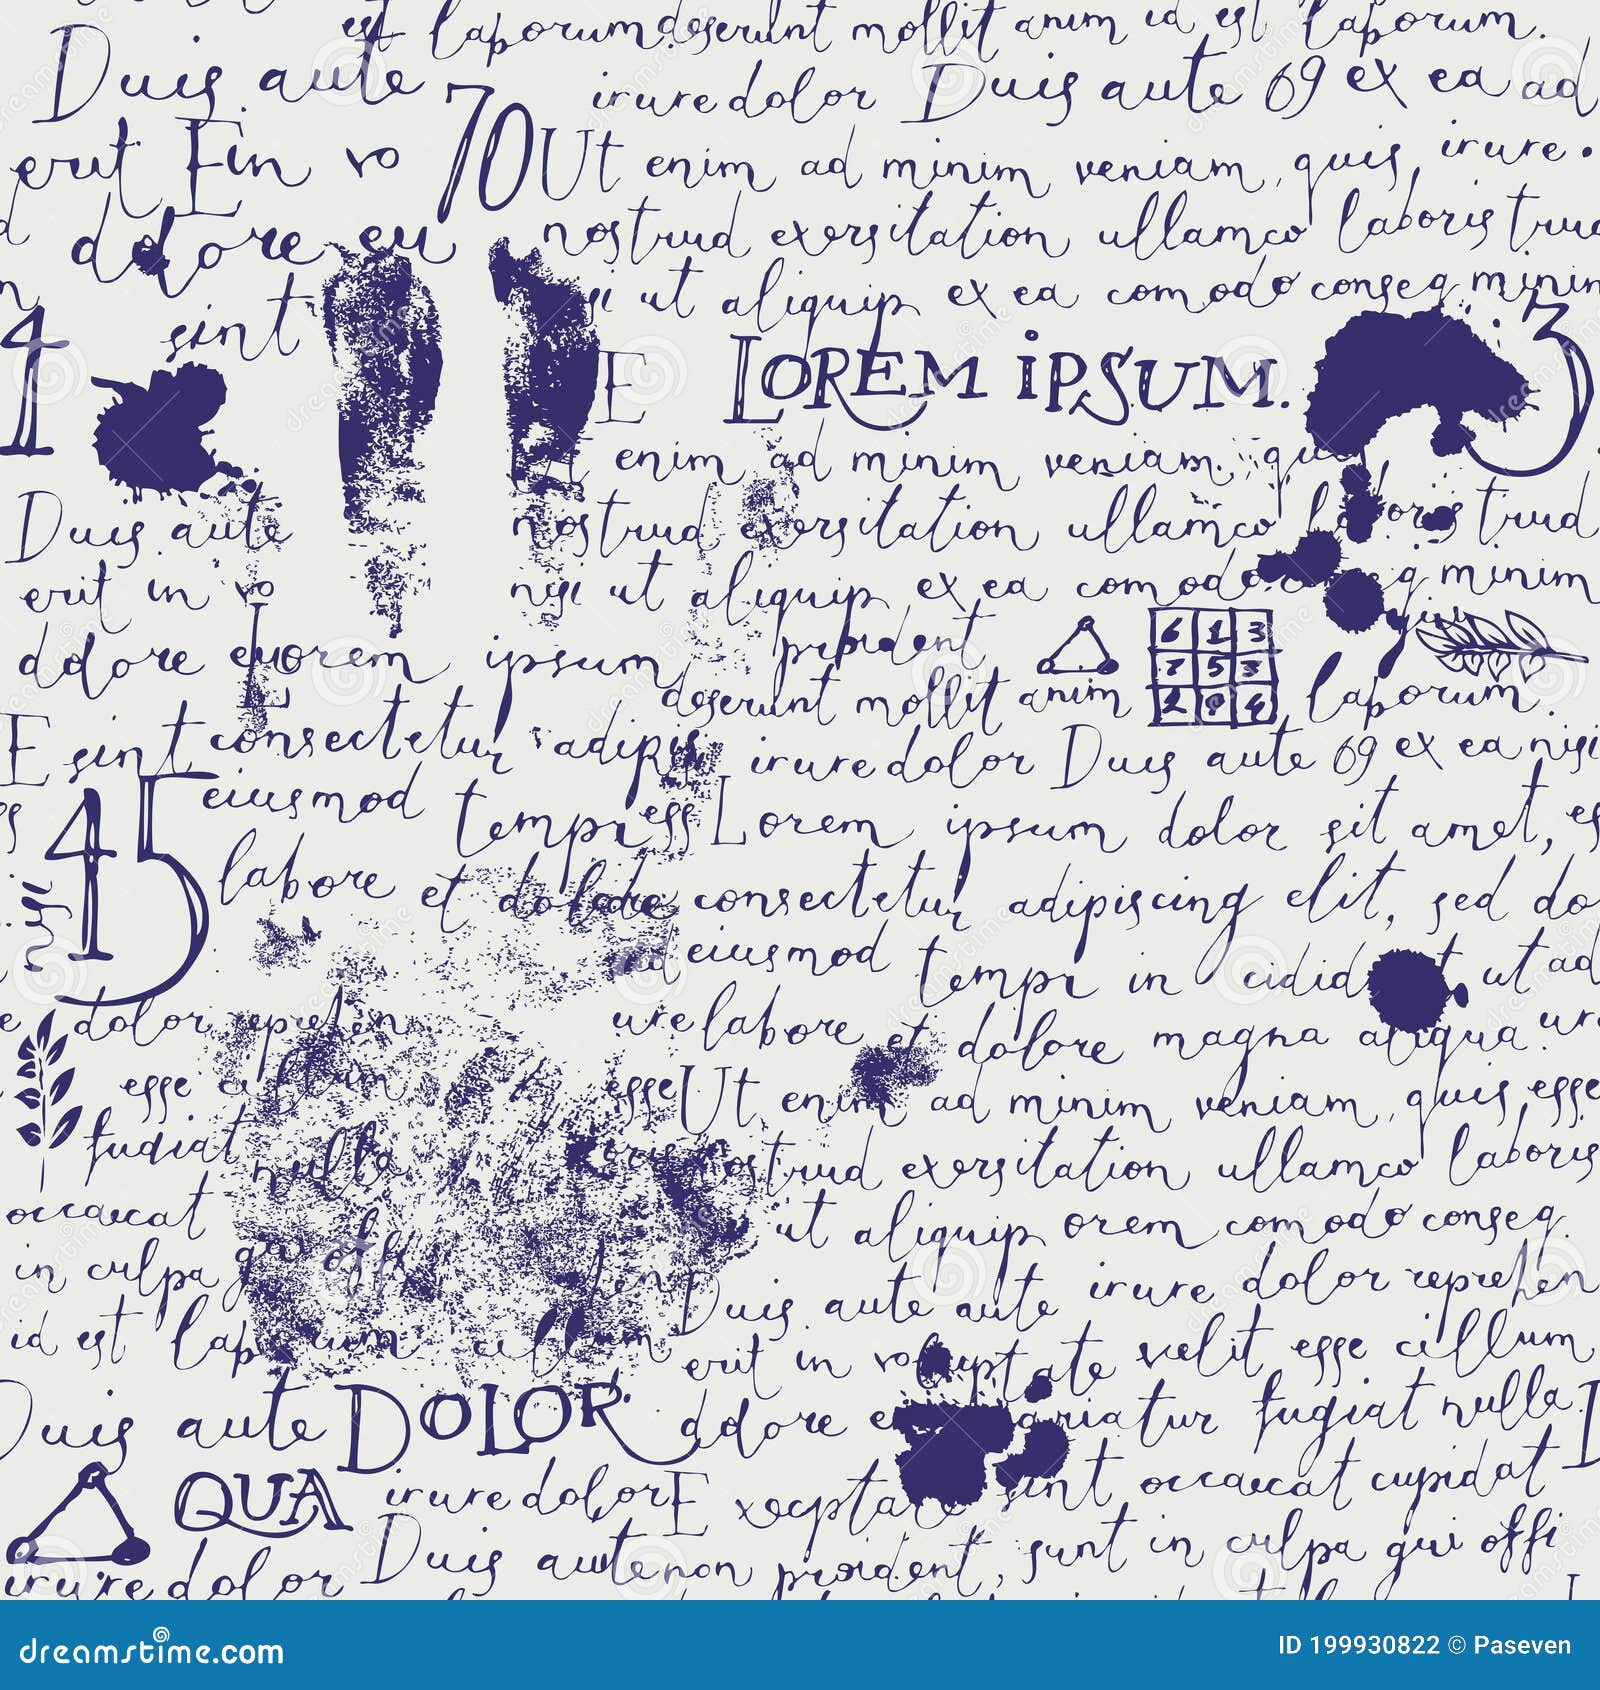 est laporum deserunt mollit anim id est laporum.
Duis aute irure dolor Duis aute 69 ex ea ad
erit E in vo 70 Ut enim ad minim veniam, quis irure.
ddore eu nostrud exersitation ullamco laboris trud
sint ut aliquip ex ea comodo conseq minim
4 E LOREM IPSUM. 3
enim ad minim veniam.
Duis aute nostrud exersitation ullamco trud
erit in vo nisi ut aliquip ex ea comodo minim
ddore eu orem ipsum proident
6 1 3
7 5 3
deserunt mollit anim laporum.
E sint consectetur adipis irure dolor Duis aute 69 ex ea nisi
45 eiusmod tempr esse Lorem ipsum dolor sit amet, es
nisi labore et dolore consectetur adipiscing elit, sed do
ad eiusmod tempr in cidid ut ad
dolor reprehen ure labore et dolore magna aliqua ure
esse cillum esse Ut enim ad minim veniam, quis esse
fugiat nulla nostrud exersitation ullamco laboris
occaecat ut aliquip orem comodo conseq.
in culpa qui offi Duis aute aute irure dolor reprehen
id est laporum cillum erit in voluptate velit esse cillum
Duis aute DOLOR ddore pariatur fugiat nulla.
QUA irure dolor E xecptate sint occaecat cupidat
irure dolor Duis aute non proident, sunt in culpa qui offi
dreamstime.com ID 199930822 © Paseven